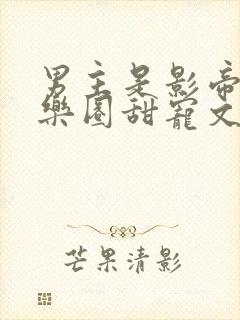 男主是影帝
樂圈甜寵文
芒果清影